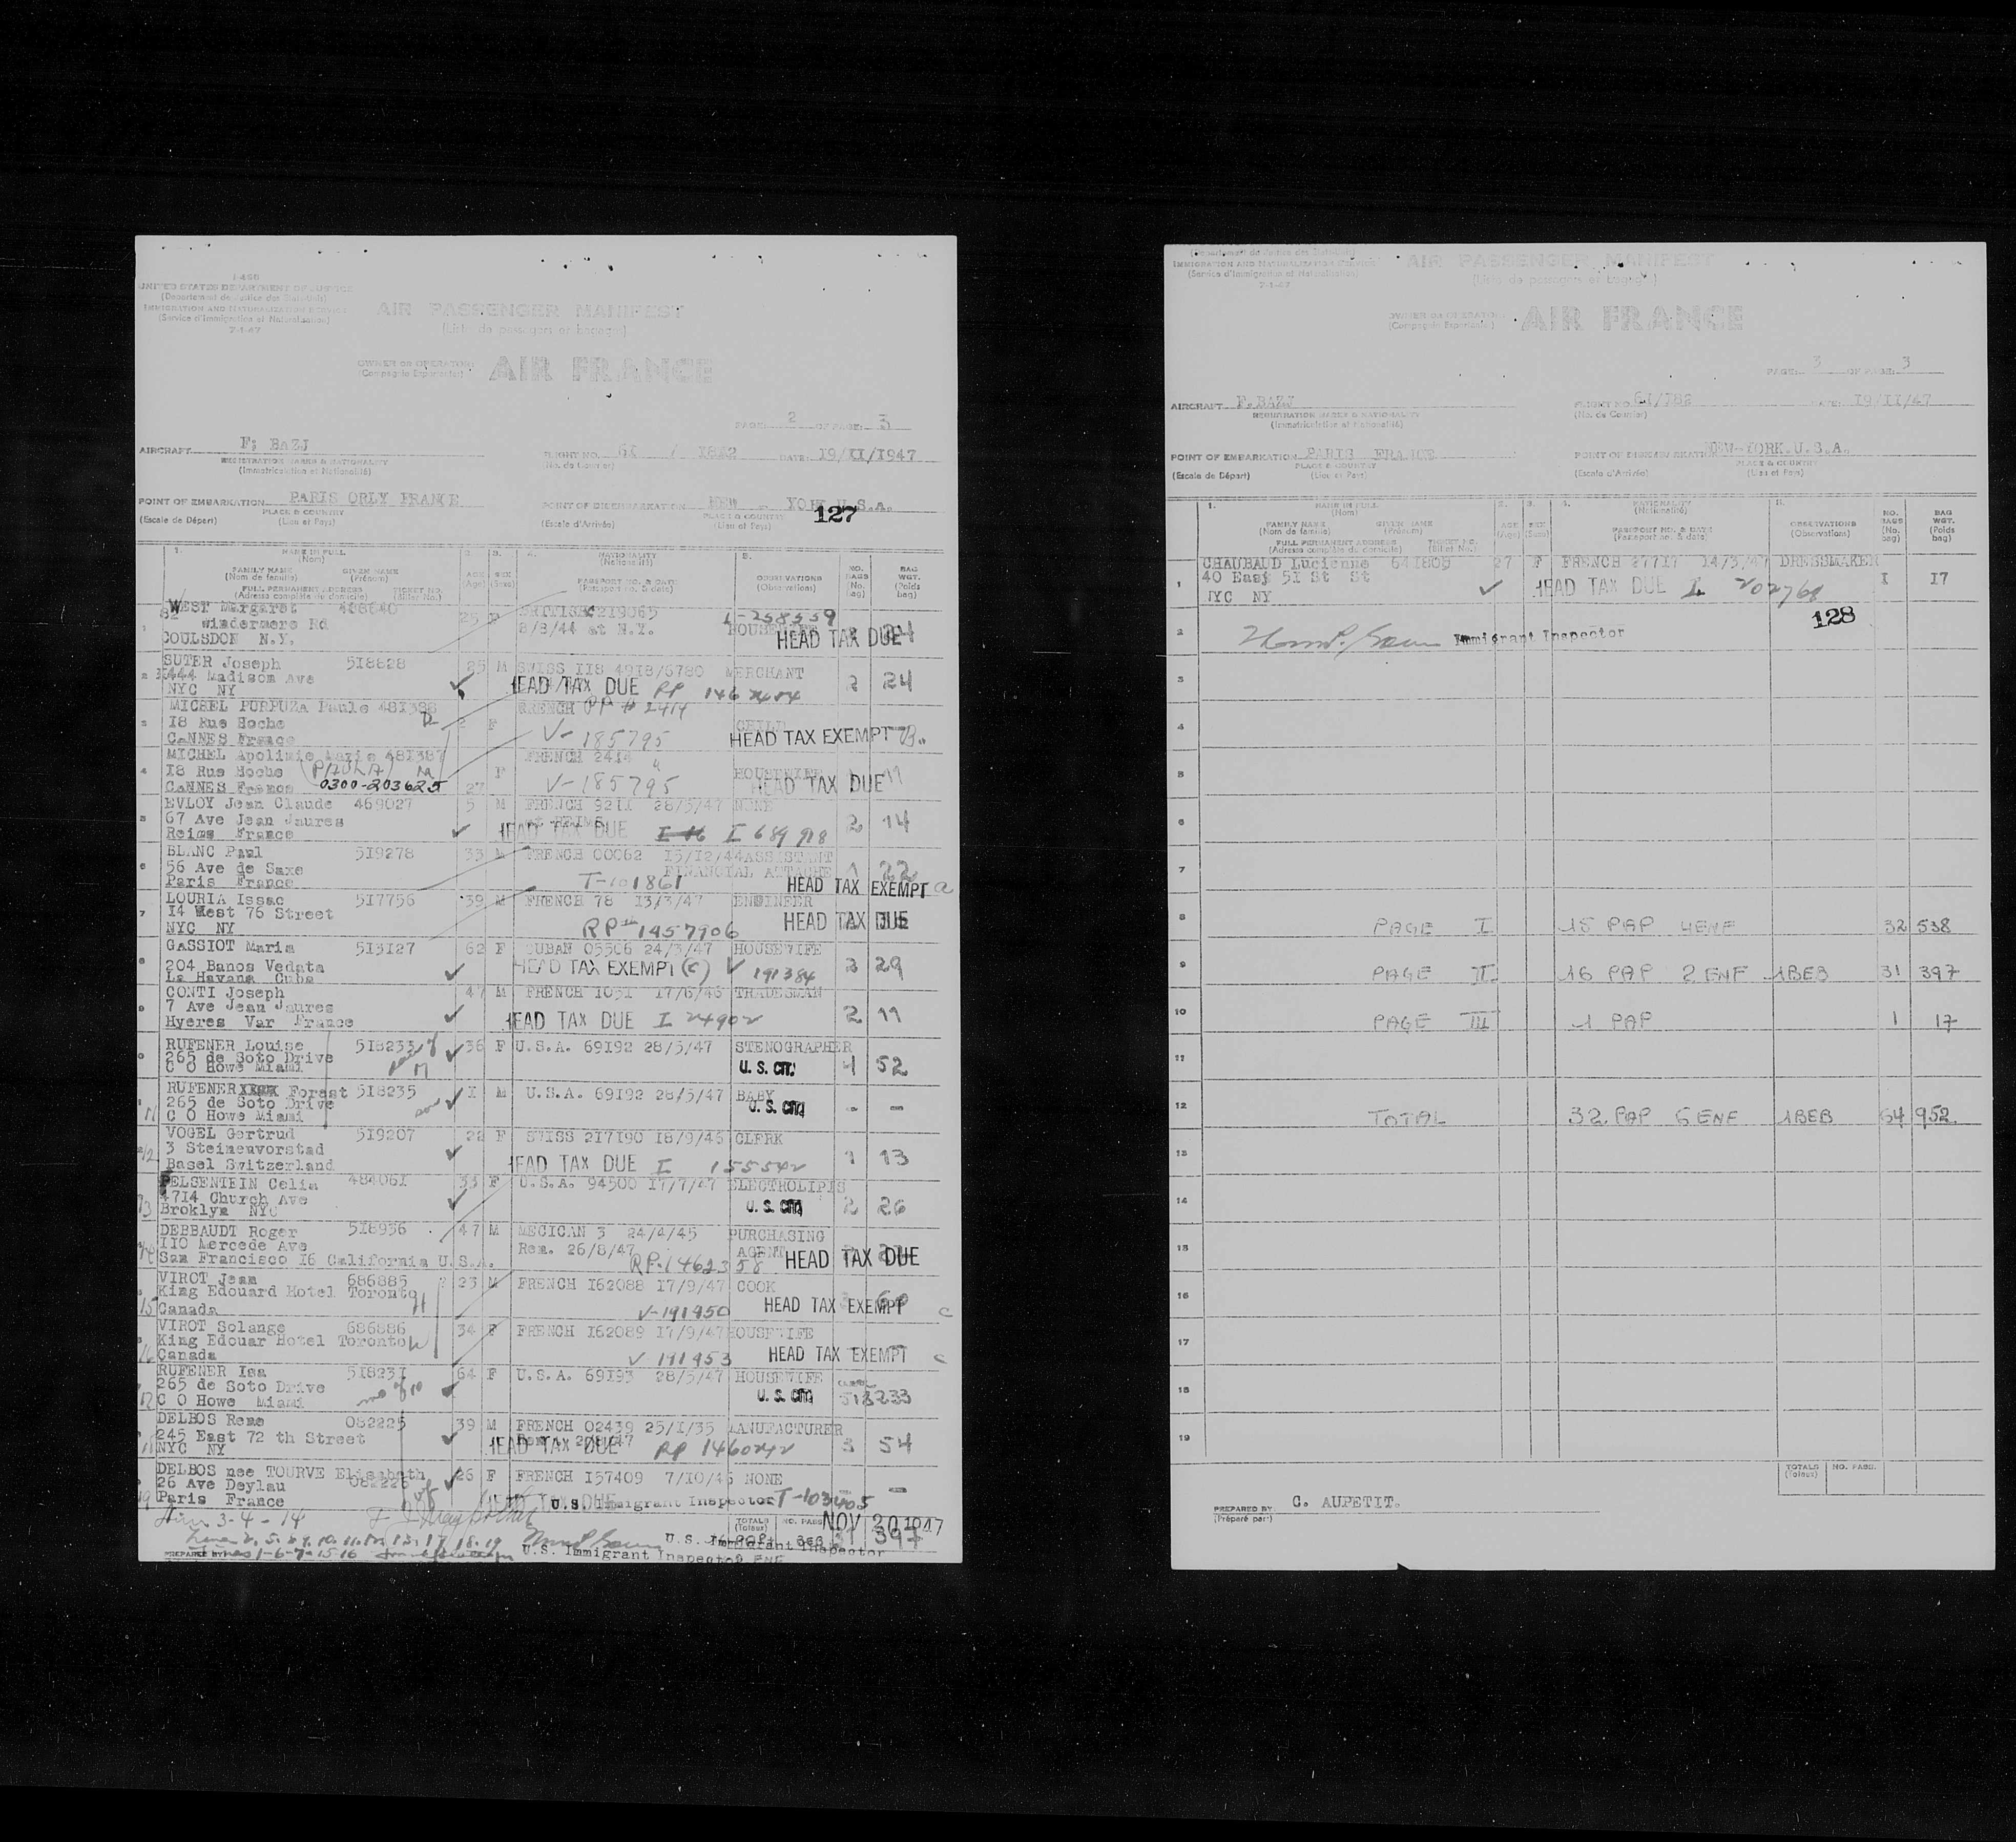 I-466
UNITED STATES DEPARTMENT OF JUSTICE
(Département de Justice des Etats-Unis)
IMMIGRATION AND NATURALIZATION SERVICE
(Service d'Immigration et Naturalisation)
7-1-47
AIR PASSENGER MANIFEST
(Liste de passagers et bagages)
OWNER OR OPERATOR:
(Compagnie Exploitante)
AIR FRANCE
PAGE: 2 OF PAGE: 3
AIRCRAFT F; BAZJ
REGISTRATION MARKS & NATIONALITY
(Immatriculation et Nationalité)
FLIGHT NO. 61 / 1812
(No. de Courier)
DATE: 19/II/1947
POINT OF EMBARKATION PARIS ORLY FRANCE
(Escale de Départ)
PLACE & COUNTRY
(Lieu et Pays)
POINT OF DISEMBARKATION NEW - YORK U.S.A.
(Escale d'Arrivée)
PLACE & COUNTRY
(Lieu et Pays)
127
1. NAME IN FULL
(Nom)
FAMILY NAME GIVEN NAME
(Nom de famille) (Prénom)
FULL PERMANENT ADDRESS TICKET NO.
(Adresse complète de domicile) (Billet No.)
2. AGE (Age)
3. SEX (Sexe)
4. NATIONALITY
(Nationalité)
PASSPORT NO. & DATE
(Passeport no. & date)
5. OBSERVATIONS
(Observations)
NO. BAGS (No. bag)
BAG WGT. (Poids bag)
WEST Margaret 408640 25 F BRITISH 219065
82 Windermere Rd 8/8/44 at N.Y. HOUSEWIFE
COULSDON N.Y. HEAD TAX DUE 24
SUTER Joseph 518828 25 M SWISS II8 4918/6780 MERCHANT
444 Madison Ave HEAD TAX DUE RP 2 24
NYC NY
MICHEL PURPUZA Paule 481388 2 F FRENCH PP # 2414
18 Rue Hoche CHILD
CANNES France V-185795 HEAD TAX EXEMPT B.
MICHEL Apolinie Marie 481387 FRENCH 2414
18 Rue Hoche F HOUSEWIFE
CANNES France 0300-203625 27 V-185795 HEAD TAX DUE
EVLOY Jean Claude 469027 5 M FRENCH 9211 28/5/47 NONE
67 Ave Jean Jaures at REIMS
Reims France HEAD TAX DUE I 689918 2 14
BLANC Paul 519278 33 M FRENCH 00062 15/12/44 ASSISTANT
56 Ave de Saxe FINANCIAL ATTACHE 1 22
Paris France T-101861 HEAD TAX EXEMPT a
LOURIA Issac 517756 39 M FRENCH 78 13/3/47 ENGINEER
14 West 76 Street HEAD TAX DUE
NYC NY RP# 1457906
GASSIOT Maria 513127 62 F CUBAN 05506 24/3/47 HOUSEWIFE
204 Banos Vedata HEAD TAX EXEMPT (c) V 191384 29
La Havana Cuba
CONTI Joseph 47 M FRENCH 1051 17/6/46 TRADESMAN
7 Ave Jean Jaures
Hyeres Var France HEAD TAX DUE I 24902 2 11
RUFENER Louise 518233 36 F U.S.A. 69192 28/5/47 STENOGRAPHER
265 de Soto Drive
C O Howe Miami U. S. CIT. 4 52
RUFENER Forest 518235 I M U.S.A. 69192 28/5/47 BABY
265 de Soto Drive U. S. CIT. - -
C O Howe Miami
VOGEL Gertrud 519207 22 F SWISS 217190 18/9/46 CLERK
3 Steinenvorstad
Basel Switzerland HEAD TAX DUE I 155542 1 13
FELSENTEIN Celia 484061 33 F U.S.A. 94500 17/7/47 ELECTROLIPIS
4714 Church Ave
Broklym NYC U. S. CIT. 2 26
DEBBAUDT Roger 518936 47 M MECICAN 3 24/4/45 PURCHASING
110 Mercede Ave Ren. 26/8/47 AGENT
San Francisco 16 California U.S.A. RP-1462358 HEAD TAX DUE
VIROT Jean 686885 23 M FRENCH 162088 17/9/47 COOK
King Edouard Hotel Toronto
Canada V-191950 HEAD TAX EXEMPT c
VIROT Solange 686886 34 F FRENCH 162089 17/9/47 HOUSEWIFE
King Edouar Hotel Toronto
Canada V 191953 HEAD TAX EXEMPT c
RUFENER Isa 518231 64 F U.S.A. 69193 28/5/47 HOUSEWIFE
265 de Soto Drive
C O Howe Miami U. S. CIT. 518233
DELBOS Rene 082225 39 M FRENCH 02439 25/1/35 MANUFACTURER
245 East 72 th Street
NYC NY HEAD TAX DUE RP 1460242 3 54
DELBOS nee TOURVE Elisabeth 26 F FRENCH 157409 7/10/46 NONE
26 Ave Deylau 082226
Paris France HEAD TAX DUE U.S. Immigrant Inspector T-103405
NOV 20 1947
TOTALS (Totaux) NO. PASS. 31 397
U.S. Immigrant Inspector
U.S. Immigrant Inspector
(Département de Justice des Etats-Unis)
IMMIGRATION AND NATURALIZATION SERVICE
(Service d'Immigration et Naturalisation)
7-1-47
AIR PASSENGER MANIFEST
(Liste de passagers et bagages)
OWNER OR OPERATOR:
(Compagnie Exploitante)
AIR FRANCE
PAGE: 3 OF PAGE: 3
AIRCRAFT F. BAZJ
REGISTRATION MARKS & NATIONALITY
(Immatriculation et Nationalité)
FLIGHT NO. 61/I82
(No. de Courier)
DATE: 19/II/47
POINT OF EMBARKATION PARIS FRANCE
(Escale de Départ)
PLACE & COUNTRY
(Lieu et Pays)
POINT OF DISEMBARKATION NEW-YORK.U.S.A.
(Escale d'Arrivée)
PLACE & COUNTRY
(Lieu et Pays)
1. NAME IN FULL
(Nom)
FAMILY NAME GIVEN NAME
(Nom de famille) (Prénom)
FULL PERMANENT ADDRESS TICKET NO.
(Adresse complète de domicile) (Billet No.)
2. AGE (Age)
3. SEX (Sexe)
4. NATIONALITY
(Nationalité)
PASSPORT NO. & DATE
(Passeport no. & date)
5. OBSERVATIONS
(Observations)
NO. BAGS (No. bag)
BAG WGT. (Poids bag)
CHAUBAUD Lucienne 641809 27 F FRENCH 27717 14/3/47 DRESSMAKER
1 40 East 51 St St HEAD TAX DUE I 202761 I 17
NYC NY
128
2 Immigrant Inspector
3
4
5
6
7
8 PAGE I 15 PAP 4ENF 32 538
9 PAGE II 16 PAP 2 ENF 1BEB 31 397
10 PAGE III 1 PAP 1 17
11
12 TOTAL 32 PAP 6 ENF 1BEB 64 952
13
14
15
16
17
18
19
TOTALS (Totaux) NO. PASS.
PREPARED BY: C. AUPETIT.
(Préparé par:)